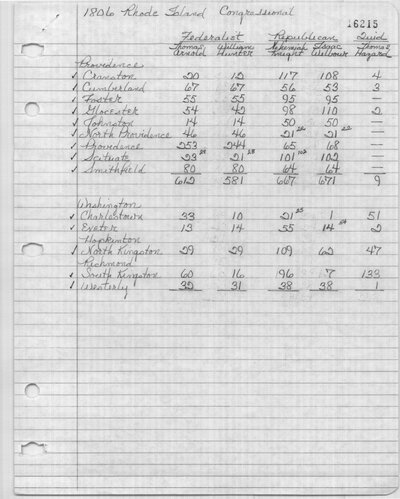 1806 Rhode Island Congressional
16215
Federalist Republican Quid
Thomas Arnold William Hunter Nehemiah Knight Isaac Wilbour Thomas Hazard
Providence
✓ Cranston 20 12 117 108 4
✓ Cumberland 67 67 56 53 3
✓ Foster 55 55 95 95 —
✓ Glocester 54 42 98 110 2
✓ Johnston 14 14 50 50 —
✓ North Providence 46 46 21 22 21 22 —
✓ Providence 253 244 65 68 —
✓ Scituate 23 21 101 102 102 —
✓ Smithfield 80 80 64 64 —
612 581 667 671 9
Washington
✓ Charlestown 33 10 21 1 51
✓ Exeter 13 14 55 14 2
Hopkinton
✓ North Kingston 29 29 109 62 47
Richmond
✓ South Kingston 60 16 196 7 133
✓ Westerly 32 31 38 38 1